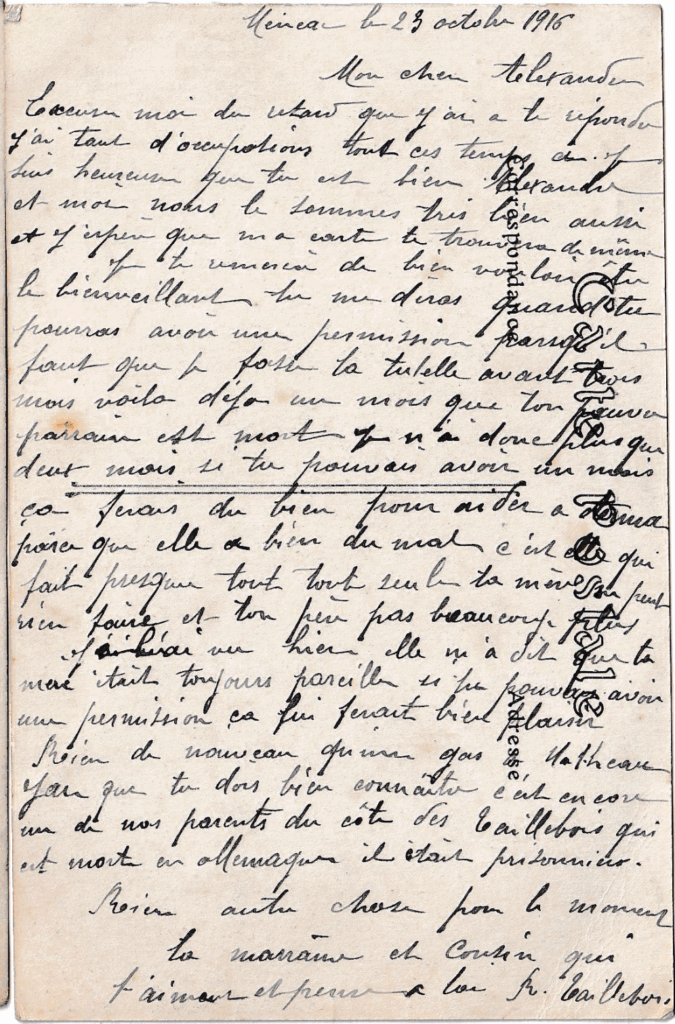 le 23 octobre 1916
Mon cher Alexandre
Excuse moi du retard que j'ai a te répondre
j'ai tant d'occupations tout ces temps ci. je
suis heureuse que tu est bien Alexandre
et moi nous le sommes très bien aussi
et j'espère que ma carte te trouvera de même
Je te remercie de bien vouloir être
le bienveillant tu me diras quand tu
pourras avoir une permission parsqu'il
faut que je fasse la tutelle avant trois
mois voila déja un mois que ton pauvre
parrain est mort je n'ai donc plus que
deux mois si tu pouvais avoir un mois
ça ferais du bien pour aider a
parce que elle a bien du mal c'est elle qui
fait presque tout toute seule ta mère ne peut
rien faire et ton père pas beaucoup plus
vu hier elle m'a dit que ta
mère était toujours pareille si tu pouvais avoir
une permission ça lui ferait bien plaisir
Rien de nouveau qu'un gas
que tu dois bien connaître c'est encore
un de nos parents du côté des Taillebois qui
est mort en allemagne il était prisonnier.
Rien autre chose pour le moment
ta marraine et Cousin qui
t'aiment et pense a toi R. Taillebois
Carte Postale
Correspondance
Adresse